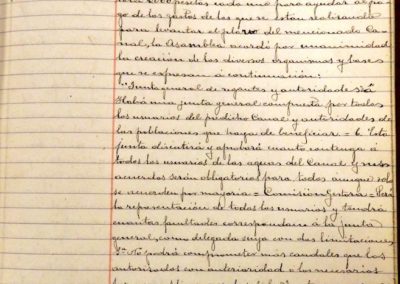 para 2000 pesetas cada uno para ayudar al pa-
go de los gastos de los que se están realizando
para levantar el plano del mencionado Ca-
nal, la Asamblea acordó por unanimidad
la creacion de los diversos organismos y bases
que se expresan á continuación:
"Junta general de regantes y autoridades
Habrá una junta general compuesta por todos
los usuarios del predicho Canal y autoridades de
las poblaciones que haya de beneficiar = Esta
junta discutirá y aprobará cuanto contenga á
todos los usuarios de las aguas del Canal y sus
acuerdos serán obligatorios para todos aunque solo
se acuerden por mayoría = Comisión Gestora =
la representación de todos los usuarios y tendrá
cuantas facultades correspondan á la junta
general, como delegada suya con dos limitaciones
1ª No podrá comprometer mas caudales que los
autorizados con anterioridad o los necesarios